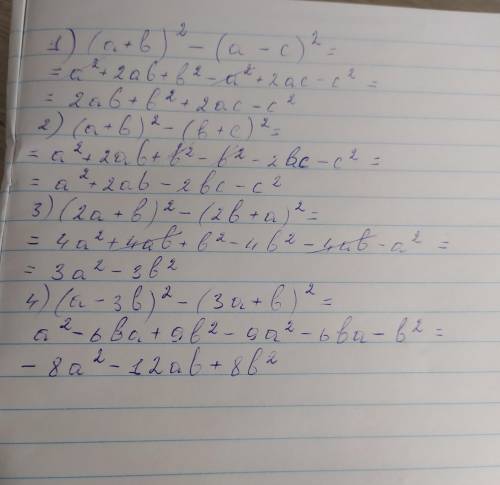 1) (a+b)² - (a-c)² =
= a² + 2ab + b² - a² + 2ac - c² =
= 2ab + b² + 2ac - c²
2) (a+b)² - (b+c)² =
= a² + 2ab + b² - b² - 2bc - c² =
= a² + 2ab - 2bc - c²
3) (2a+b)² - (2b+a)² =
= 4a² + 4ab + b² - 4b² - 4ab - a² =
= 3a² - 3b²
4) (a-3b)² - (3a+b)² =
a² - 6ba + 9b² - 9a² - 6ba - b² =
- 8a² - 12ab + 8b²